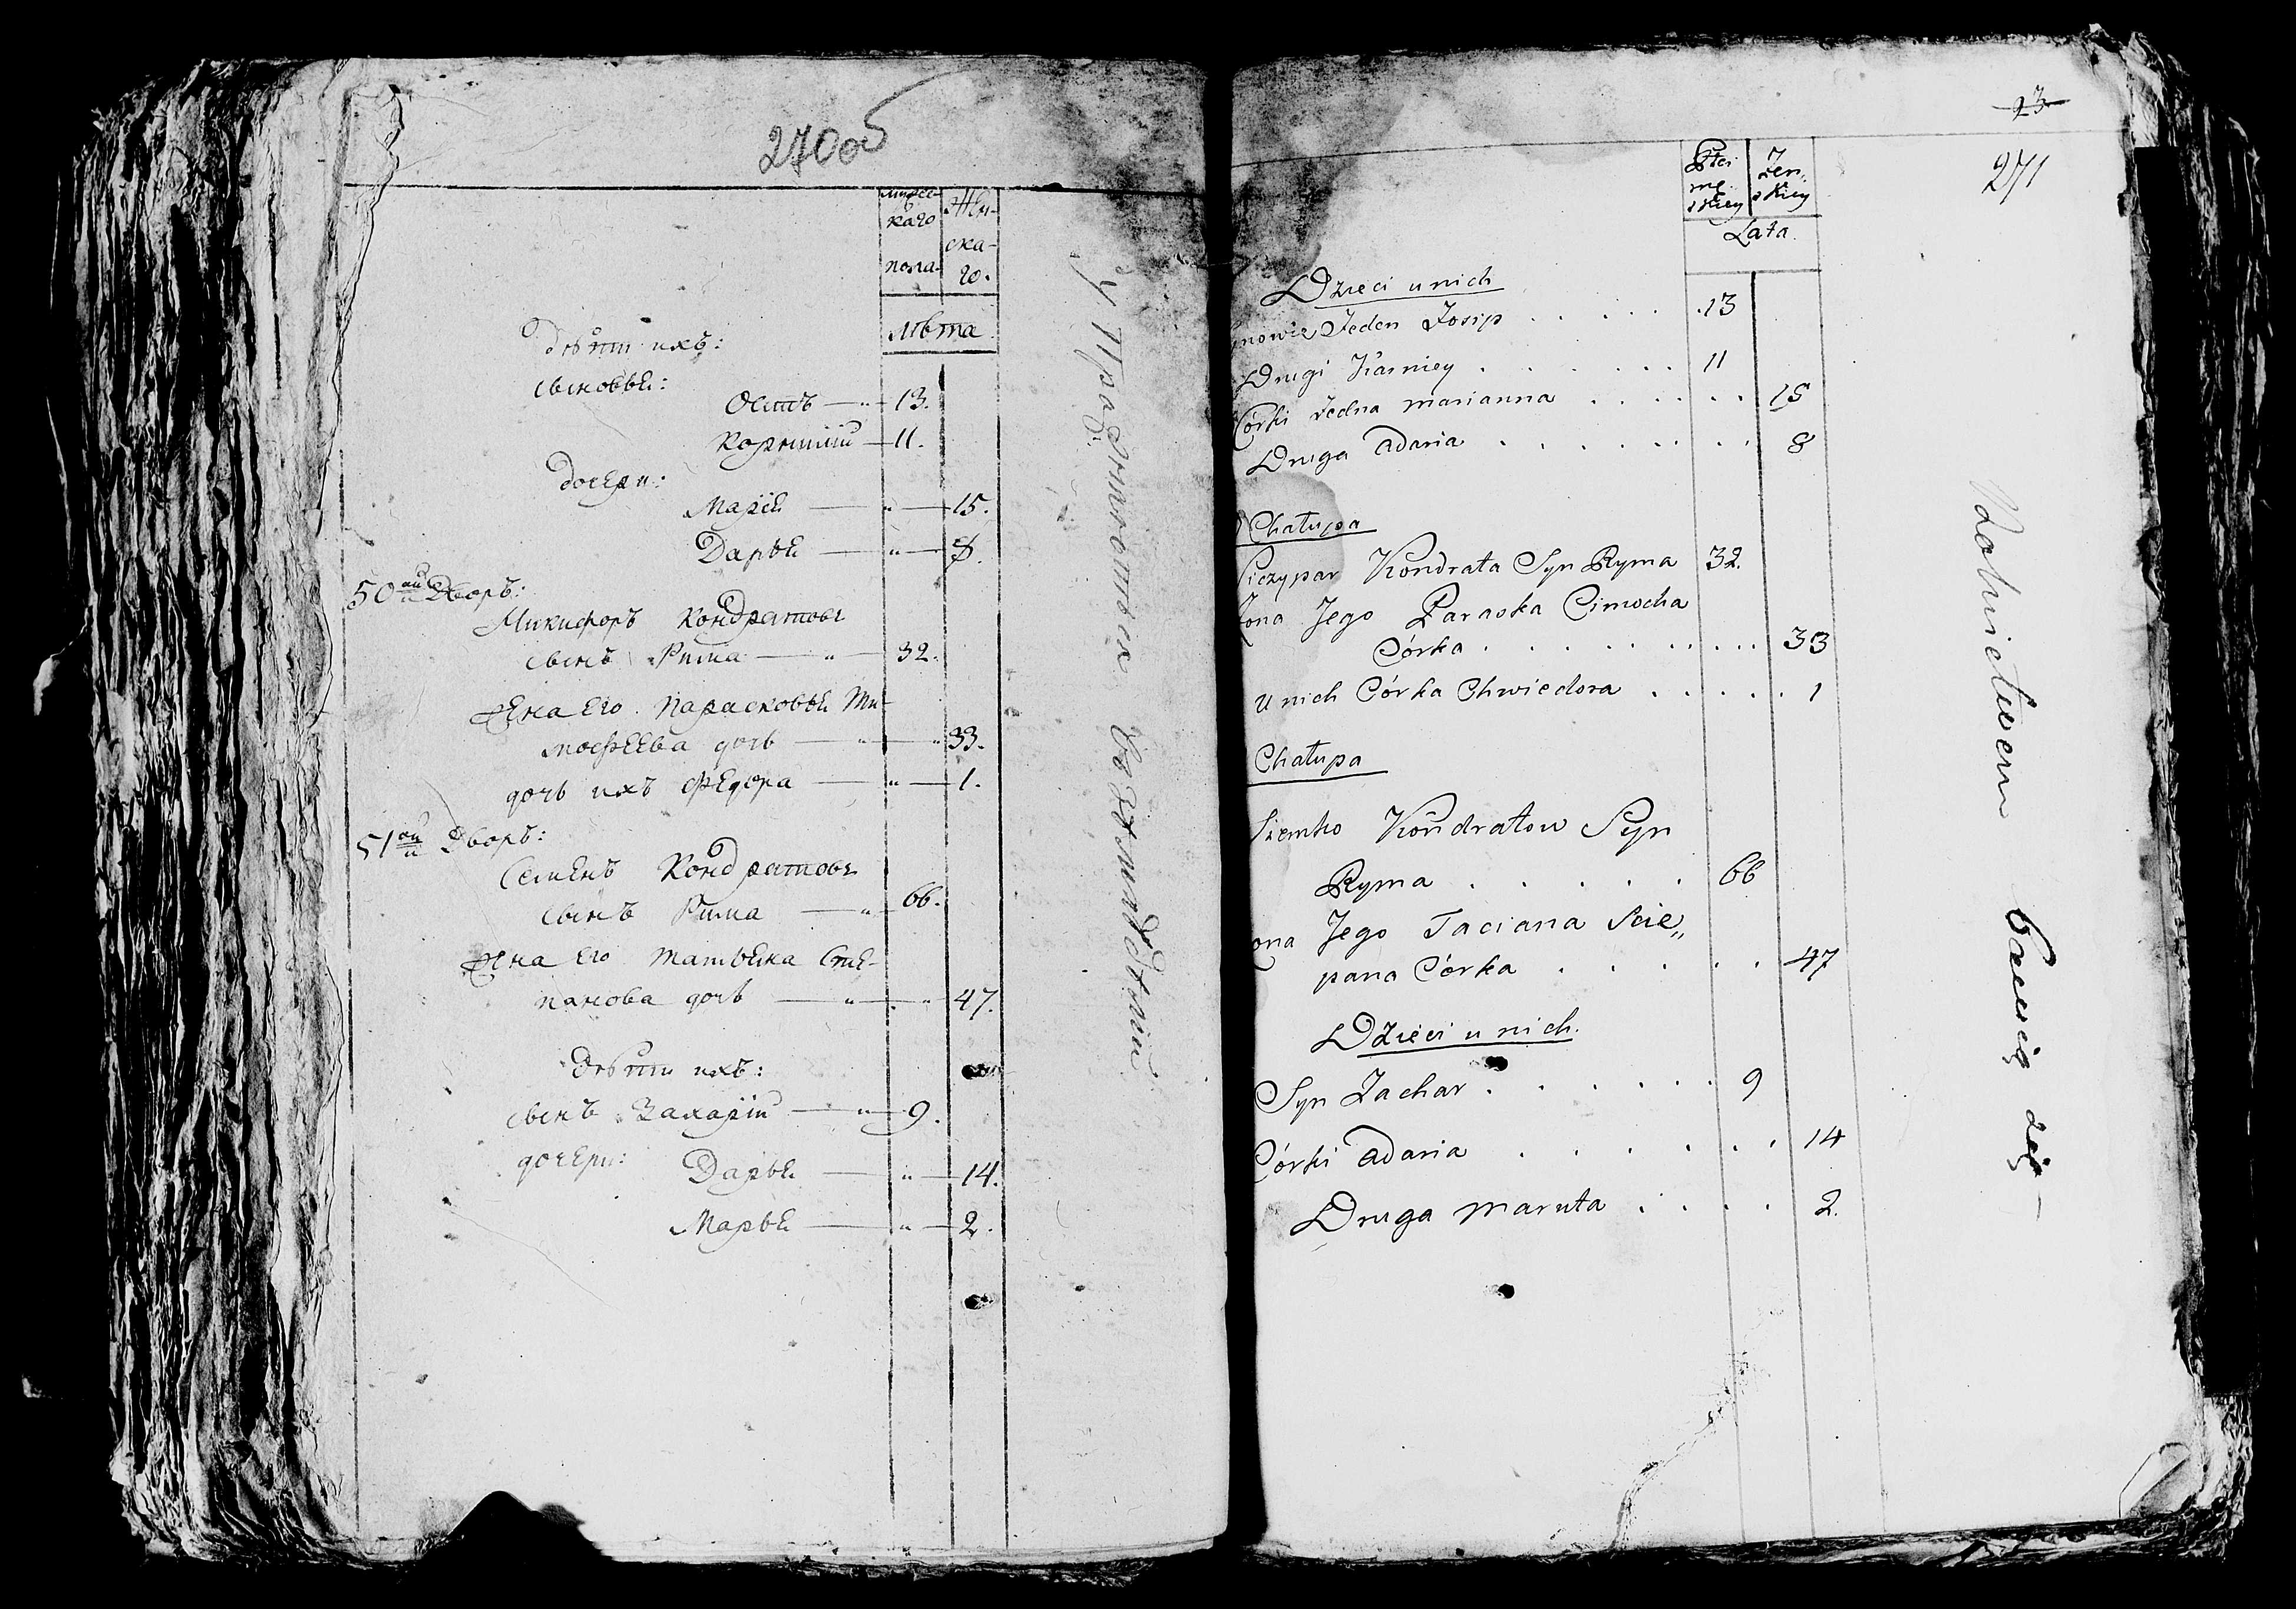 270об
мужес-
каго
пола
Жен-
ска-
го.
лѣта
дѣти ихъ:
сыновья:
Осипъ — 13.
Корнилий — 11.
дочери:
Марья — " — 15.
Дарья — " — 8.
50ый Дворъ:
Микифоръ Кондратовъ
сынъ Рима — " — 32.
жена его Парасковья Ти-
мофеева дочь — " — " 33.
дочь ихъ Федора — " — 1.
51ый Дворъ:
Семенъ Кондратовъ
сынъ Рима — " — 66.
жена его Татьяна Сте-
панова дочь — " — " 47.
дѣти ихъ:
сынъ Захарій — " — 9.
дочери: Дарья — " — 14.
Марья — " — 2.
23
271
Płci
mę
skiey
żen
skiey
Lata
Dzieci u nich
ynowie Jeden Josip . . . . . 13
Drugi Karniey . . . . . . 11
Córki Jedna marianna . . . . . . 15
Druga adaria . . . . . . . 8
Chałupa
iczypar Kondrata Syn Ryma 32.
żona Jego Paraska Cimocha
Córka . . . . . . . . . . 33
u nich Córka Chwiedora . . . . . 1
Chałupa
Siemko Kondratow Syn
Ryma . . . . . 66
ona Jego Taciana Scie„
pana Córka . . . . . 47
Dzieci u nich.
Syn Zachar . . . . . . 9
Córki adaria . . . . . . 14
Druga maruta . . . . 2.